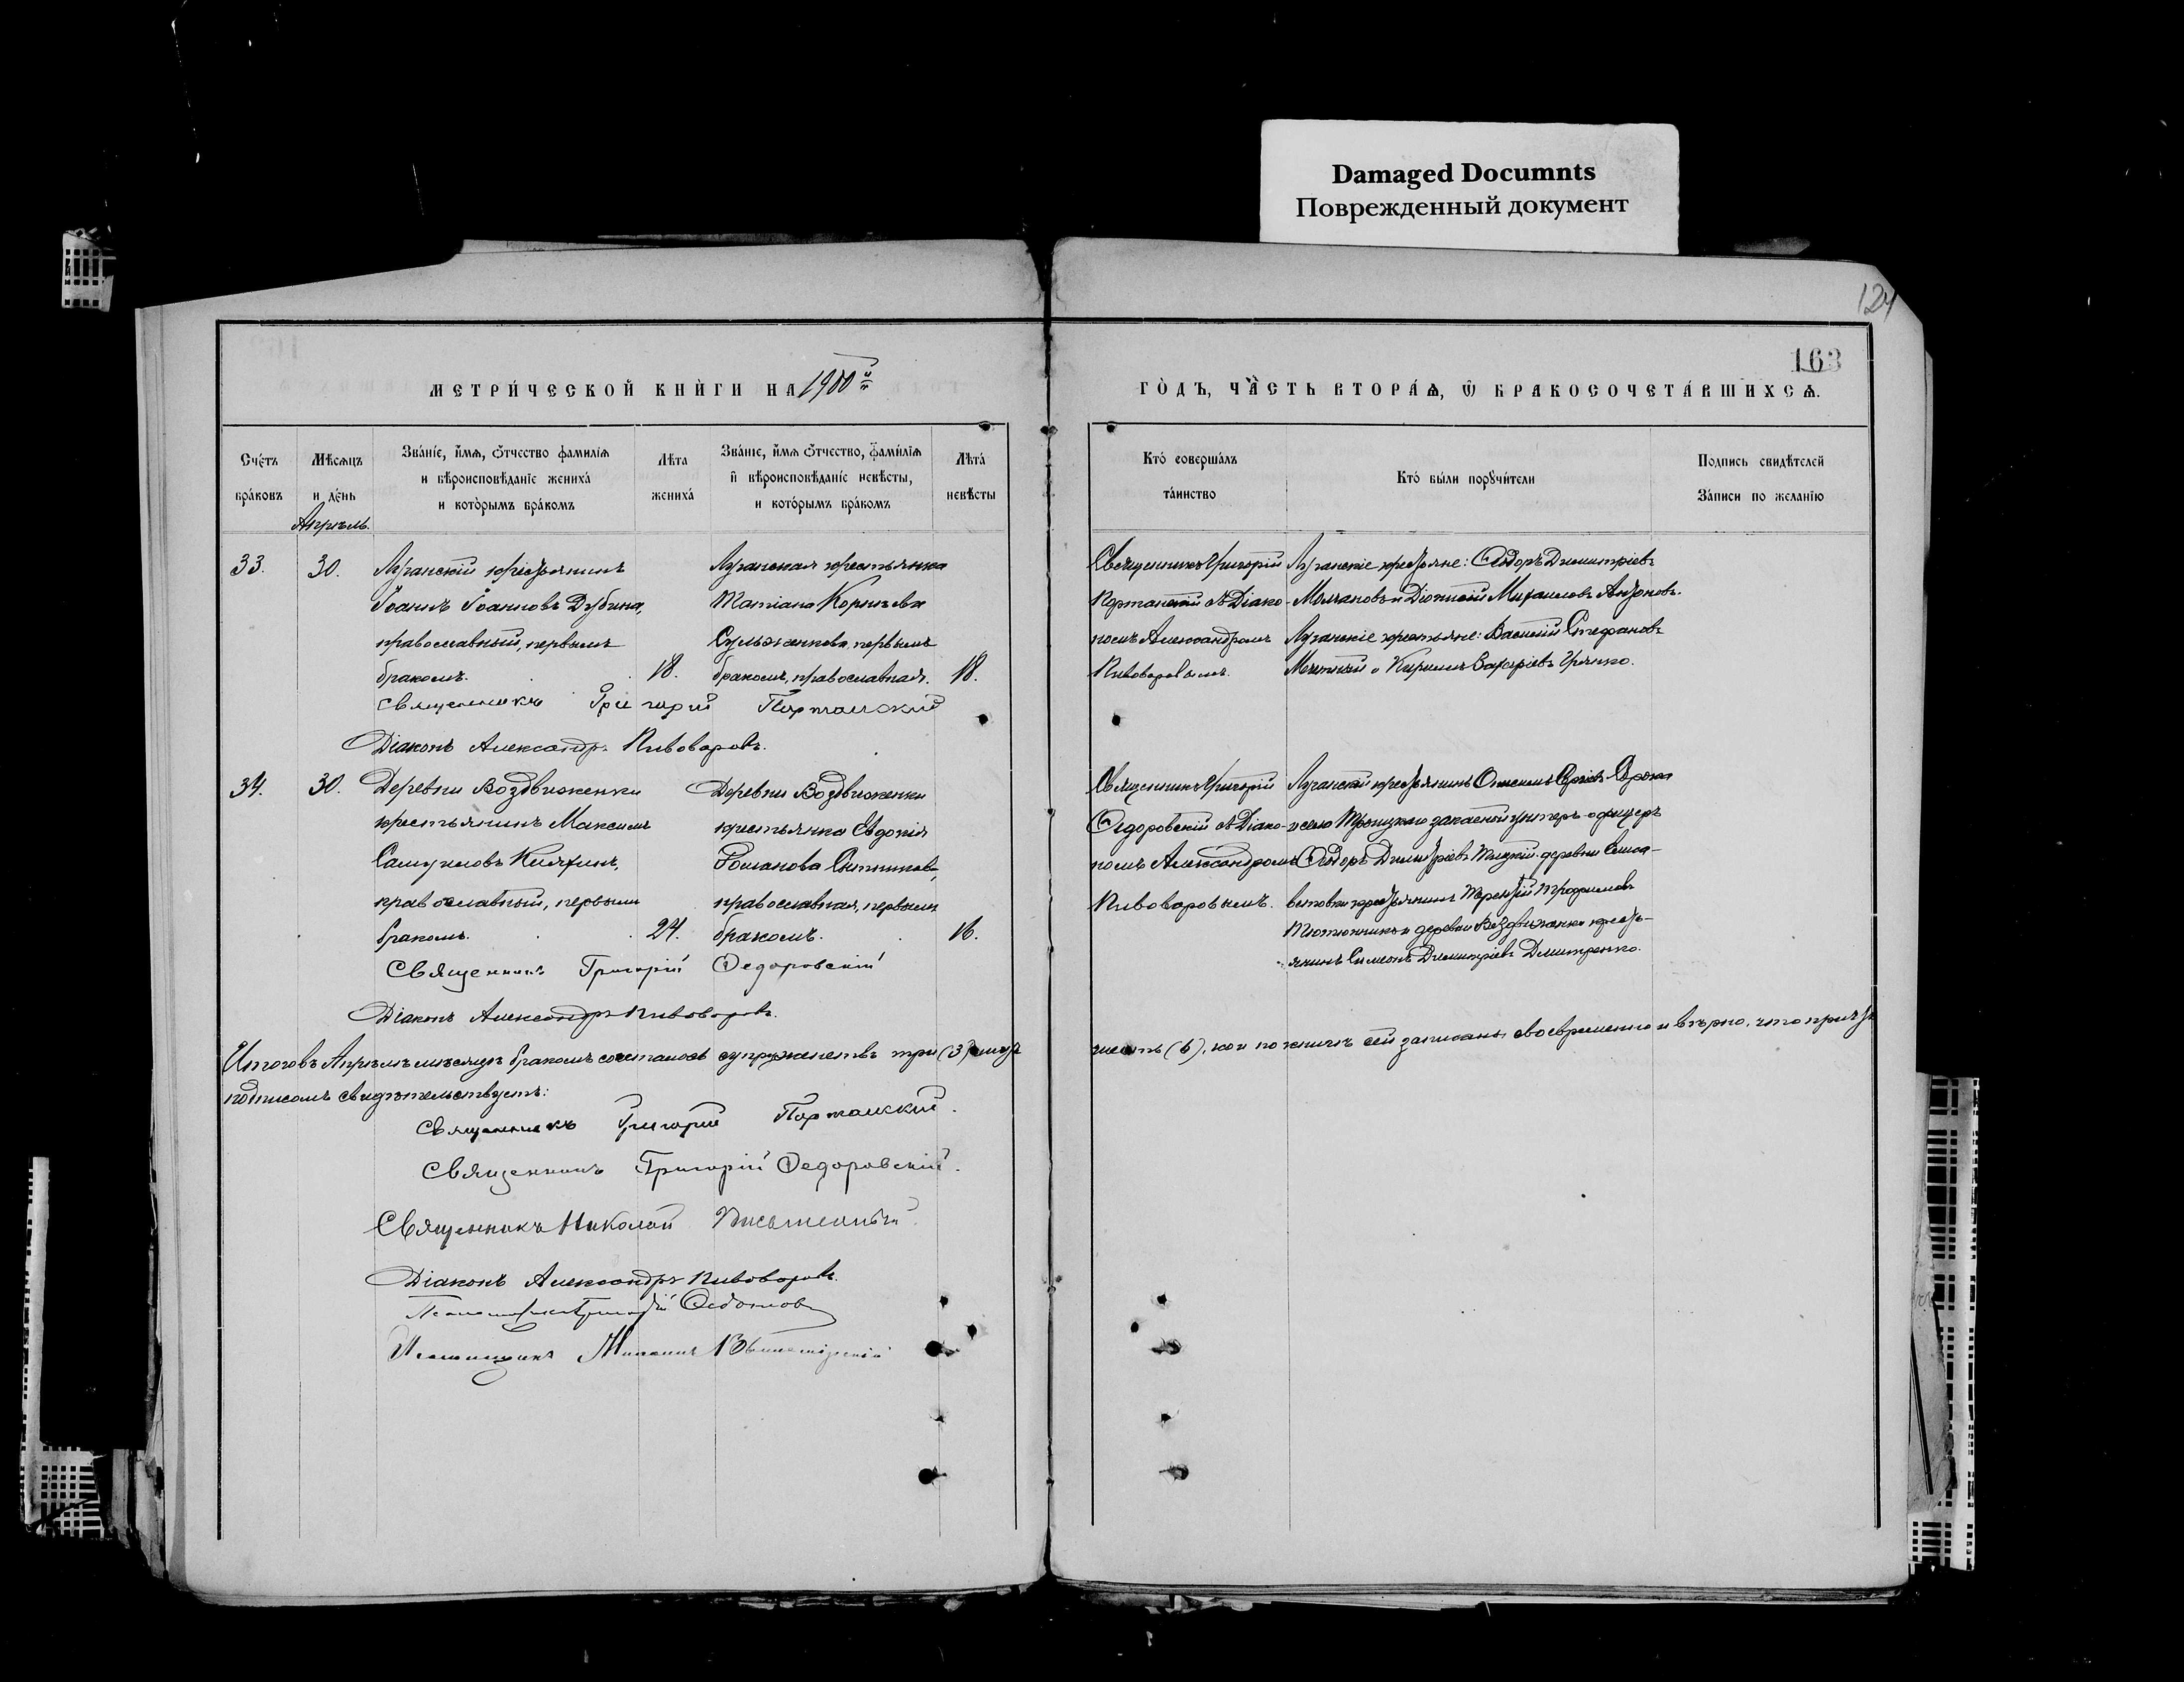 Damaged Documnts
Поврежденный документ
124
163
МЕТРИ́ЧЕСКОЙ КНИ́ГИ НА 1900й
ГО́ДЪ, ЧА́СТЬ ВТОРА́Ѧ, Ѿ БРАКОСОЧЕТА́ВШИХСѦ.
Сче́тъ бра́ковъ
Мѣсѧцъ и де́нь
Зва́нїе, и҆́мѧ, ѻ҆́тчество фамилїѧ и вѣроисповѣ́данїе жениха́ и кото́рымъ бра́комъ
Лѣта жениха́
Зва́нїе, и҆́мѧ ѻ҆́тчество, фами́лїѧ и҆ вѣроисповѣ́данїе невѣ́сты, и кото́рымъ бра́комъ
Лѣта́ невѣ́сты
Кто́ соверша́лъ та́инство
Кто́ бы́ли порꙋчи́тели
Подпись свидѣ́телей За́писи по жела́нїю
Апрѣль.
33. 30.
Луганскій крестьянинъ
Іоаннъ Іоанновъ Дубина,
православный, первымъ
бракомъ. 18.
Луганская крестьянка
Татіана Корнѣева
первымъ
бракомъ, православная. 18.
Священникъ Григорій
Порташскій съ Діако-
номъ Александромъ
Пивоваровымъ.
Луганскіе крестьяне: Ѳеодоръ Димитріевъ
Молчановъ и Діонисій Михаиловъ Антоновъ.
Луганскіе крестьяне: Василій Стефановъ
и Кириллъ Захаріевъ
Священникъ Григорій
Діаконъ Александръ Пивоваровъ.
34. 30.
Деревни Воздвиженки
крестьянинъ Максимъ
Самуиловъ
православный, первымъ
бракомъ. 24.
Деревни Воздвиженки
крестьянка Евдокія
Романова
православная, первымъ
бракомъ. 16.
Священникъ Григорій
Ѳедоровскій съ Діако-
номъ Александромъ
Пивоваровымъ.
Луганскій крестьянинъ
и села Троицкаго запасной унтеръ-офицеръ
Ѳеодоръ Димитріевъ деревни
крестьянинъ Терентій Трофимовъ
и деревни Воздвиженки кресть-
янинъ Симеонъ Димитріевъ Дмитренко.
Священникъ Григорій Ѳедоровскій
Діаконъ Александръ Пивоваровъ.
Итого въ Апрѣлѣ мѣсяцѣ бракомъ сочеталось супружествъ три (3) лицъ
шесть (6), кои по книгѣ сей записаны своевременно и вѣрно, что причтъ
подписомъ свидѣтельствуетъ:
Священникъ Григорій
Священникъ Григорій Ѳедоровскій.
Священникъ Николай
Діаконъ Александръ Пивоваровъ.
Псаломщикъ